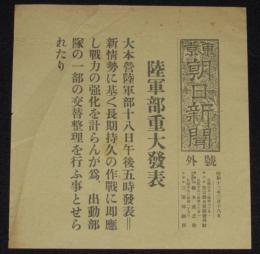 東京朝日新聞
號外
陸軍部重大發表
大本營陸軍部十八日午後五時發表＝
新情勢に基く長期持久の作戰に即應
し戰力の强化を計らんが爲、出動部
隊の一部の交替整理を行ふ事とせら
れたり